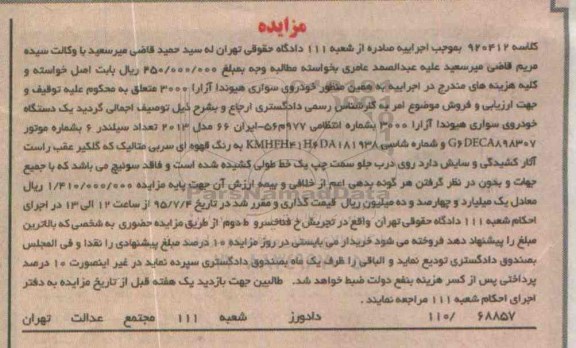 مزایده
کلاسه 920412 بموجب اجراییه صادره از شعبه 111 دادگاه حقوقی تهران له سید حمید قاضی میرسعید با وکالت سیده
مریم قاضی میرسعید علیه عبدالصمد عامری بخواسته مطالبه وجه بمبلغ 450/000/000 ریال بابت اصل خواسته و
کلیه هزینه های مندرج در اجراییه به همین منظور خودروی سواری هیوندا آزارا 3000 متعلق به محکوم علیه توقیف و
جهت ارزیابی و فروش موضوع امر به کارشناس رسمی دادگستری ارجاع و بشرح ذیل توصیف اجمالی گردید یک دستگاه
خودروی سواری هیوندا آزارا 3000 بشماره انتظامی 977ه56-ایران 66 مدل 2013 تعداد سیلندر 6 بشماره موتور
G6DECA898307 و شماره شاسی KMHFH41H6DA181938 به رنگ قهوه ای سربی متالیک که گلگیر عقب راست
آثار کشیدگی و سایش دارد روی درب جلو سمت چپ یک خط طولی کشیده شده است و فاقد سوئیچ می باشد که با جمیع
جهات و بدون در نظر گرفتن هر گونه بدهی اعم از خلافی و بیمه ارزش آن جهت پایه مزایده 1/410/000/000 ریال
معادل یک میلیارد و چهارصد و ده میلیون ریال قیمت گذاری و مقرر شد در تاریخ 95/7/4 از ساعت 12 الی 13 در اجرای
احکام شعبه 111 دادگاه حقوقی تهران واقع در تجریش خ فناخسرو ط دوم از طریق مزایده حضوری به شخصی که بالاترین
مبلغ را پیشنهاد دهد فروخته می شود خریدار می بایستی در روز مزایده 10 درصد مبلغ پیشنهادی را نقدا و فی المجلس
بصندوق دادگستری تودیع نماید و الباقی را ظرف یک ماه بصندوق دادگستری سپرده نماید در غیر اینصورت 10 درصد
پرداختی پس از کسر هزینه بنفع دولت ضبط خواهد شد. طالبین جهت بازدید یک هفته قبل از تاریخ مزایده به دفتر
اجرای احکام شعبه 111 مراجعه نمایند.
110/ 68857 دادورز شعبه 111 مجتمع عدالت تهران